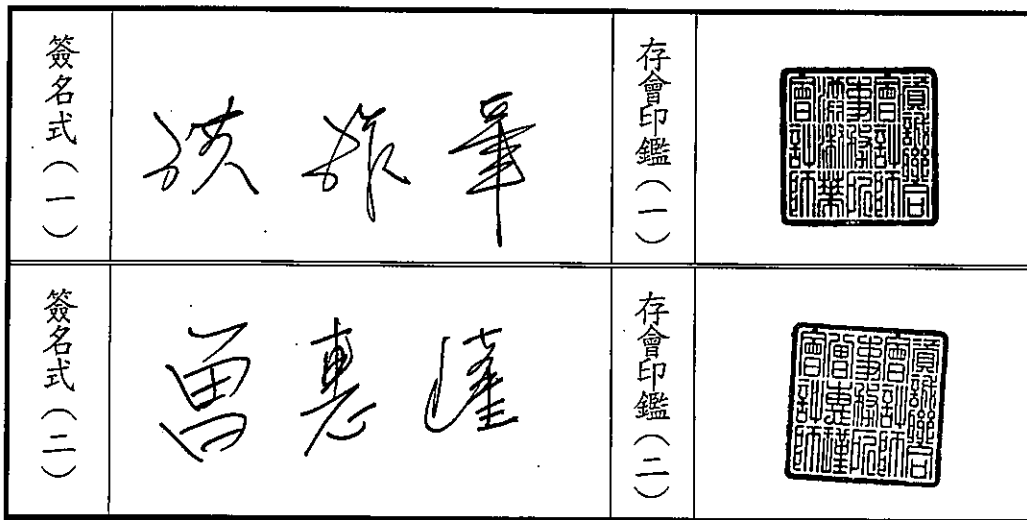 簽名式(一)
洪淑華
存會印鑑(一)
資誠聯合
會計師
事務所
洪淑華
會計師
簽名式(二)
曾惠瑾
存會印鑑(二)
資誠聯合
會計師
事務所
曾惠瑾
會計師